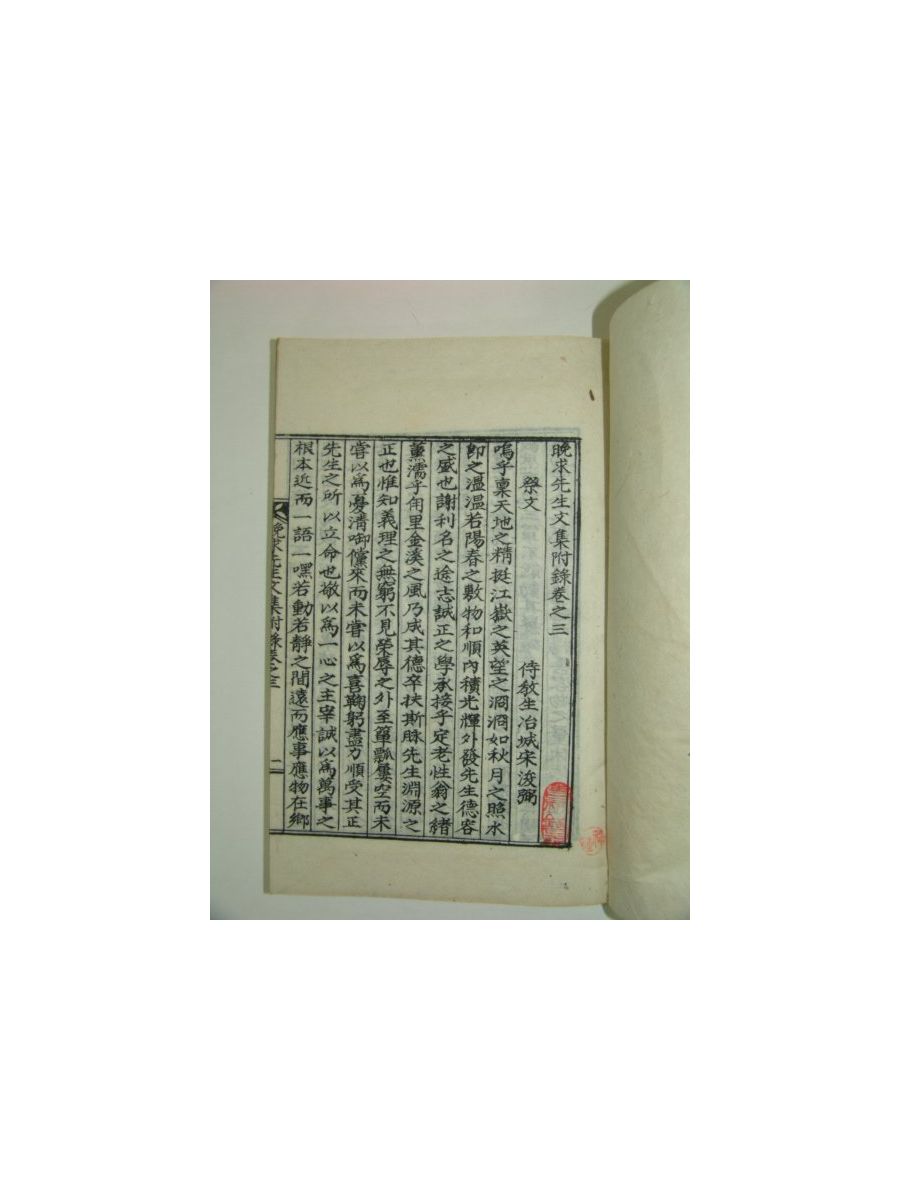 晩求先生文集附錄卷之三
祭文 侍教生冶城宋浚弼
嗚乎稟天地之精挺江嶽之英望之洞洞如秋月之照水
卽之溫溫若陽春之敷物和順內積光輝外發先生德容
之盛也謝利名之途志誠正之學承接乎定老性翁之緖
薰濡乎甪里金溪之風乃成其德卒扶斯脉先生淵源之
正也惟知義理之無窮不見榮辱之外至簞瓢屢空而未
嘗以爲憂淸啣儻來而未嘗以爲喜鞠躬盡力順受其正
先生之所以立命也敬以爲一心之主宰誠以爲萬事之
根本近而一語一嘿若動若靜之間遠而應事應物在鄉
晩求先生文集附錄卷之三 一